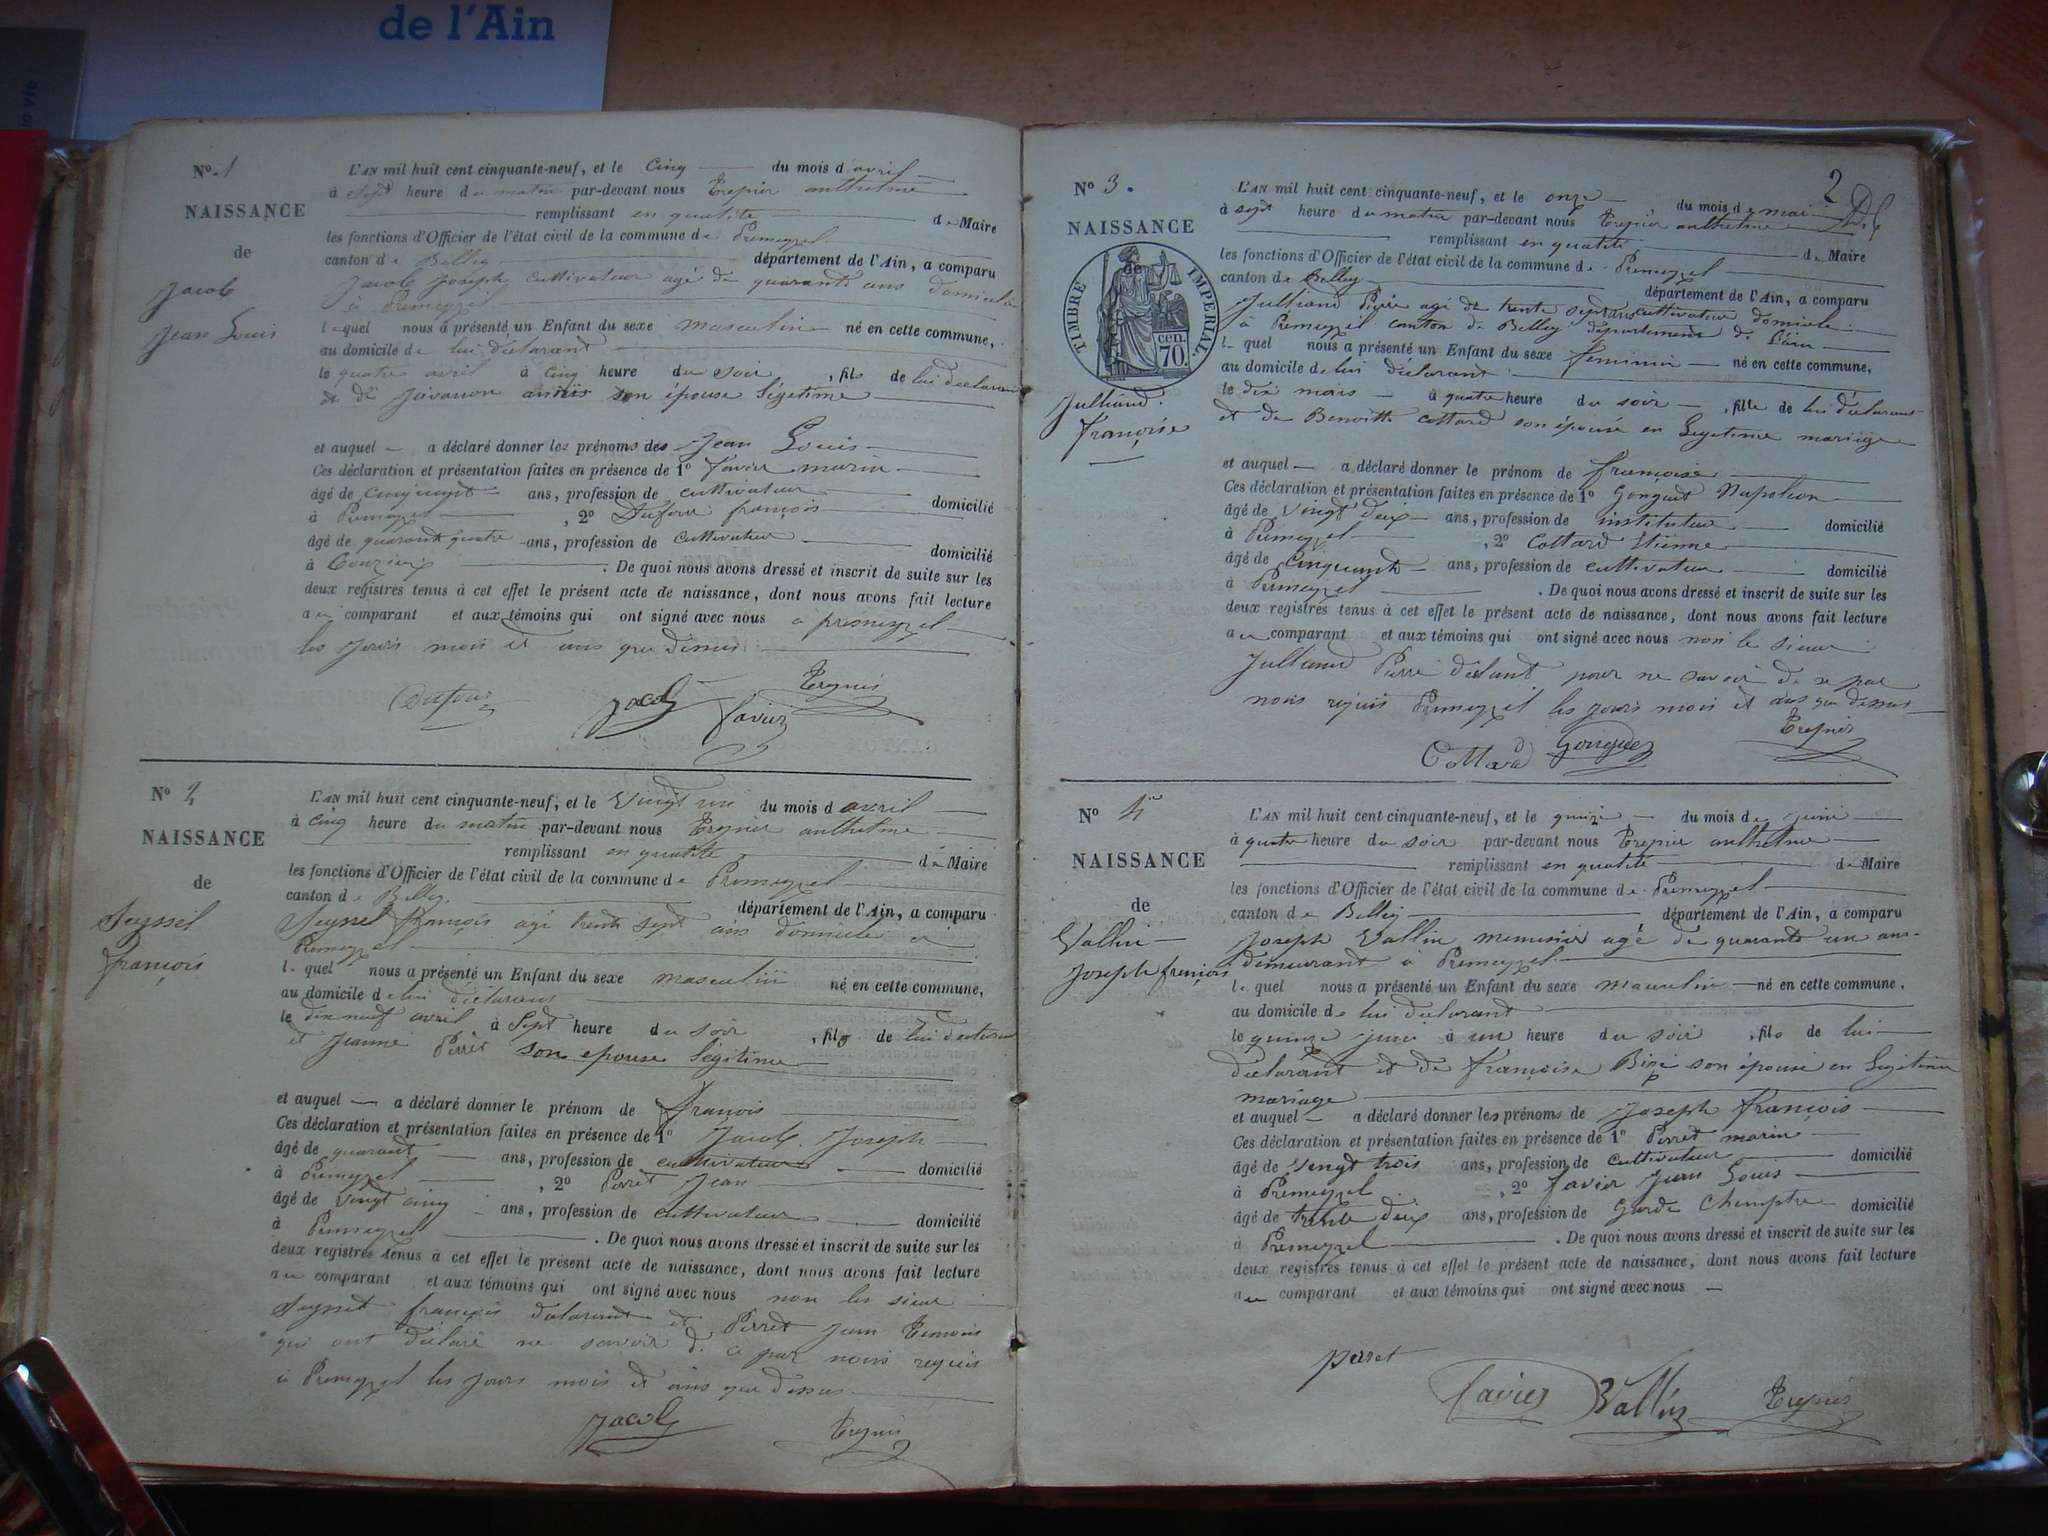 de l'Ain
No. 1
NAISSANCE
de
Jacob
Jean Louis
L'AN mil huit cent cinquante-neuf, et le Cinq du mois d'avril
à sept heure du matin par-devant nous Trepier anthelme
remplissant en qualite de Maire
les fonctions d'Officier de l'état civil de la commune de Premeyzel
canton de Belley département de l'Ain, a comparu
Jacob Joseph cultivateur agé de quarante ans domicile
à Premeyzel
lequel nous a présenté un Enfant du sexe masculin né en cette commune,
au domicile de lui déclarant
le quatre avril à cinq heure du soir, fils de lui declarant
de son épouse légetime
et auquel a déclaré donner les prénoms des Jean Louis
Ces déclaration et présentation faites en présence de 1o favier marin
âgé de ans, profession de cultivateur domicilié
à Premeyzel, 2o Dufour françois
âgé de quarante quatre ans, profession de cultivateur domicilié
à . De quoi nous avons dressé et inscrit de suite sur les
deux registres tenus à cet effet le présent acte de naissance, dont nous avons fait lecture
au comparant et aux témoins qui ont signé avec nous a premeyzel
les jours mois et ans que dessus
Dufour Jacob favier Trepier
No 2
NAISSANCE
de
Seyssel
françois
L'AN mil huit cent cinquante-neuf, et le Vingt un du mois d avril
à cinq heure du matin par-devant nous Trepier anthelme
remplissant en qualite de Maire
les fonctions d'Officier de l'état civil de la commune de Premeyzel
canton de Belley département de l'Ain, a comparu
Seyssel françois agé trente sept ans domicile à
Premeyzel
lequel nous a présenté un Enfant du sexe masculin né en cette commune,
au domicile de lui déclarant
le dix neuf avril à sept heure du soir, fils de lui declarant
et Jeanne Perret son epouse légitime
et auquel a déclaré donner le prénom de françois
Ces déclaration et présentation faites en présence de 1o Jacob Joseph
âgé de quarante ans, profession de cultivateur domicilié
à Premeyzel, 2o Perret Jean
âgé de vingt cinq ans, profession de cultivateur domicilié
à Premeyzel . De quoi nous avons dressé et inscrit de suite sur les
deux registres tenus à cet effet le présent acte de naissance, dont nous avons fait lecture
au comparant et aux témoins qui ont signé avec nous non les sieur
Seyssel françois déclarant et Perret Jean temoins
qui ont déclaré ne savoir de ce par nous requis
à Premeyzel les jours mois et ans que dessus
Jacob Trepier
2
No 3.
NAISSANCE
de
TIMBRE IMPERIAL.
70 cen.
Julliand
françoise
L'AN mil huit cent cinquante-neuf, et le onze du mois de mai
à sept heure du matin par-devant nous Trepier anthelme
remplissant en qualité de Maire
les fonctions d'Officier de l'état civil de la commune de Premeyzel
canton de Belley département de l'Ain, a comparu
Julliand Pierre agé de trente sept ans cultivateur domicile
à Premeyzel canton de Belley département de l'ain
lequel nous a présenté un Enfant du sexe feminin né en cette commune,
au domicile de lui déclarant
le dix mais à quatre heure du soir, fille de lui déclarant
et de Benoitte cottard son épouse en Legetime mariige
et auquel a déclaré donner le prénom de françoise
Ces déclaration et présentation faites en présence de 1o Gonguet Napoléon
âgé de vingt deux ans, profession de instituteur domicilié
à Premeyzel, 2o Cottard Etienne
âgé de cinquante ans, profession de cultivateur domicilié
à Premeyzel . De quoi nous avons dressé et inscrit de suite sur les
deux registres tenus à cet effet le présent acte de naissance, dont nous avons fait lecture
au comparant et aux témoins qui ont signé avec nous non le sieur
Julliand Pierre pour ne savoir de ce par
nous requis Premeyzel les jours mois et ans que dessus
Cottard Trepier
No 4
NAISSANCE
de
Vallin
Joseph françois
L'AN mil huit cent cinquante-neuf, et le quinze du mois de juin
à quatre heure du soir par-devant nous Trepier anthelme
remplissant en qualité de Maire
les fonctions d'Officier de l'état civil de la commune de Premeyzel
canton de Belley département de l'Ain, a comparu
Joseph Vallin menusier agé de quarante un ans
demeurant à Premeyzel
lequel nous a présenté un Enfant du sexe masculin né en cette commune,
au domicile de lui déclarant
le quinze juin à un heure du soir, fils de lui
déclarant et de françoise son épouse en Legitime
mariage
et auquel a déclaré donner les prénoms de Joseph françois
Ces déclaration et présentation faites en présence de 1o Perret marin
âgé de vingt trois ans, profession de cultivateur domicilié
à Premeyzel, 2o favier Jean Louis
âgé de trente deux ans, profession de Garde Champtre domicilié
à Premeyzel . De quoi nous avons dressé et inscrit de suite sur les
deux registres tenus à cet effet le présent acte de naissance, dont nous avons fait lecture
au comparant et aux témoins qui ont signé avec nous
perret favier Vallin Trepier